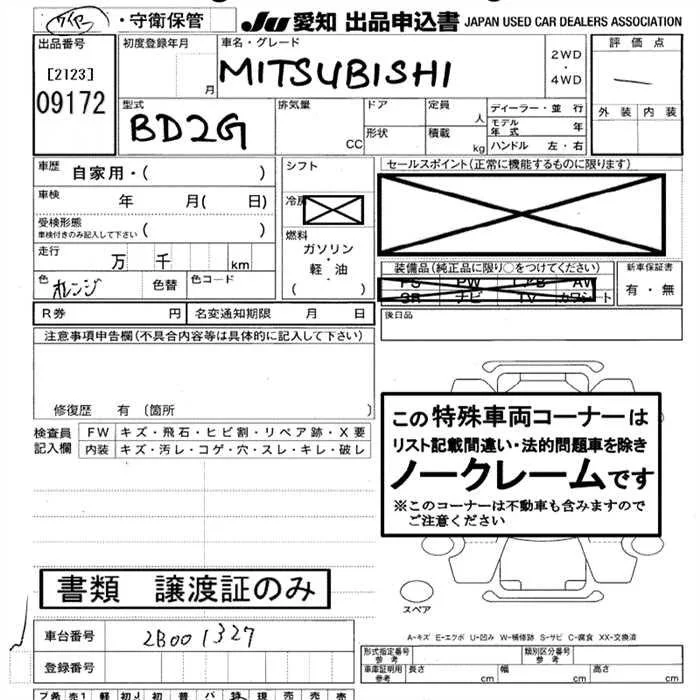 ・守衛保管 JU 愛知 出品申込書 JAPAN USED CAR DEALERS ASSOCIATION
出品番号 初度登録年月 車名・グレード 評価点
[2123] 月 MITSUBISHI 2WD・4WD
09172 型式 排気量 ドア 定員 人 ディーラー・並行 外装 内装
BD2G CC 形状 積載 kg モデル年式 年
ハンドル 左・右
車歴 自家用・( ) シフト セールスポイント(正常に機能するものに限ります)
車検 年 月( 日) 冷房
受検形態 車検付きのみ記入して下さい ( ) 燃料
走行 万 千 km ガソリン・軽油 ( )
装備品(純正品に限り○をつけてください) 新車保証書
PS PW エアB AW 有・無
SR ナビ TV カワシート
色 オレンジ 色替 色コード
R券 円 名変通知期限 月 日 後日品
注意事項申告欄(不具合内容等は具体的に記入して下さい)
修復歴 有 〔箇所 〕
検査員記入欄 FW キズ・飛石・ヒビ割・リペア跡・X要
内装 キズ・汚レ・コゲ・穴・スレ・キレ・破レ
この特殊車両コーナーは
リスト記載間違い・法的問題車を除き
ノークレームです
※このコーナーは不動車も含みますので
ご注意ください
書類 譲渡証のみ
スペア
A-キズ E-エクボ U-凹み W-補修跡 S-サビ C-腐食 XX-交換済
車台番号 2B001327
登録番号
形式指定番号 参考 類別区分番号 参考
車庫証明用 参考 長さ cm 幅 cm 高さ cm